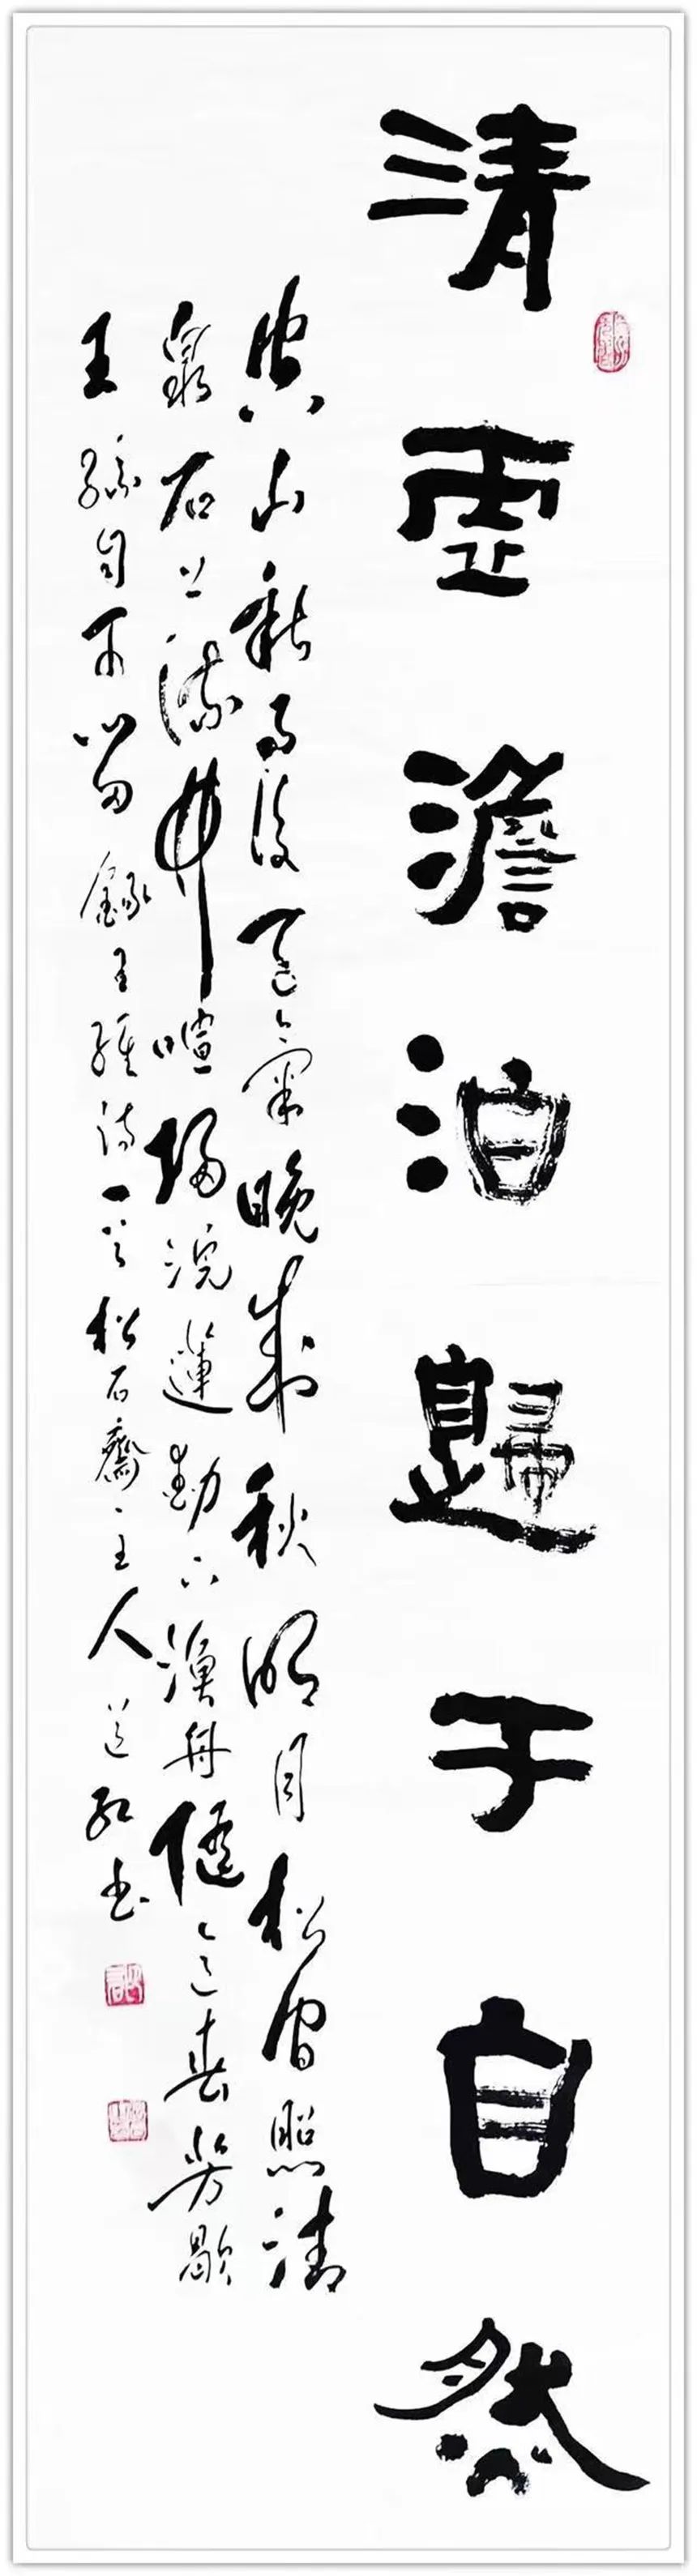 清虚澹泊歸于自然
空山新雨後天氣晚來秋明月松間照清
泉石上流竹喧歸浣蓮動下漁舟隨意春芳歇
王孫自可留錄王維詩一首松石齋主人紅书